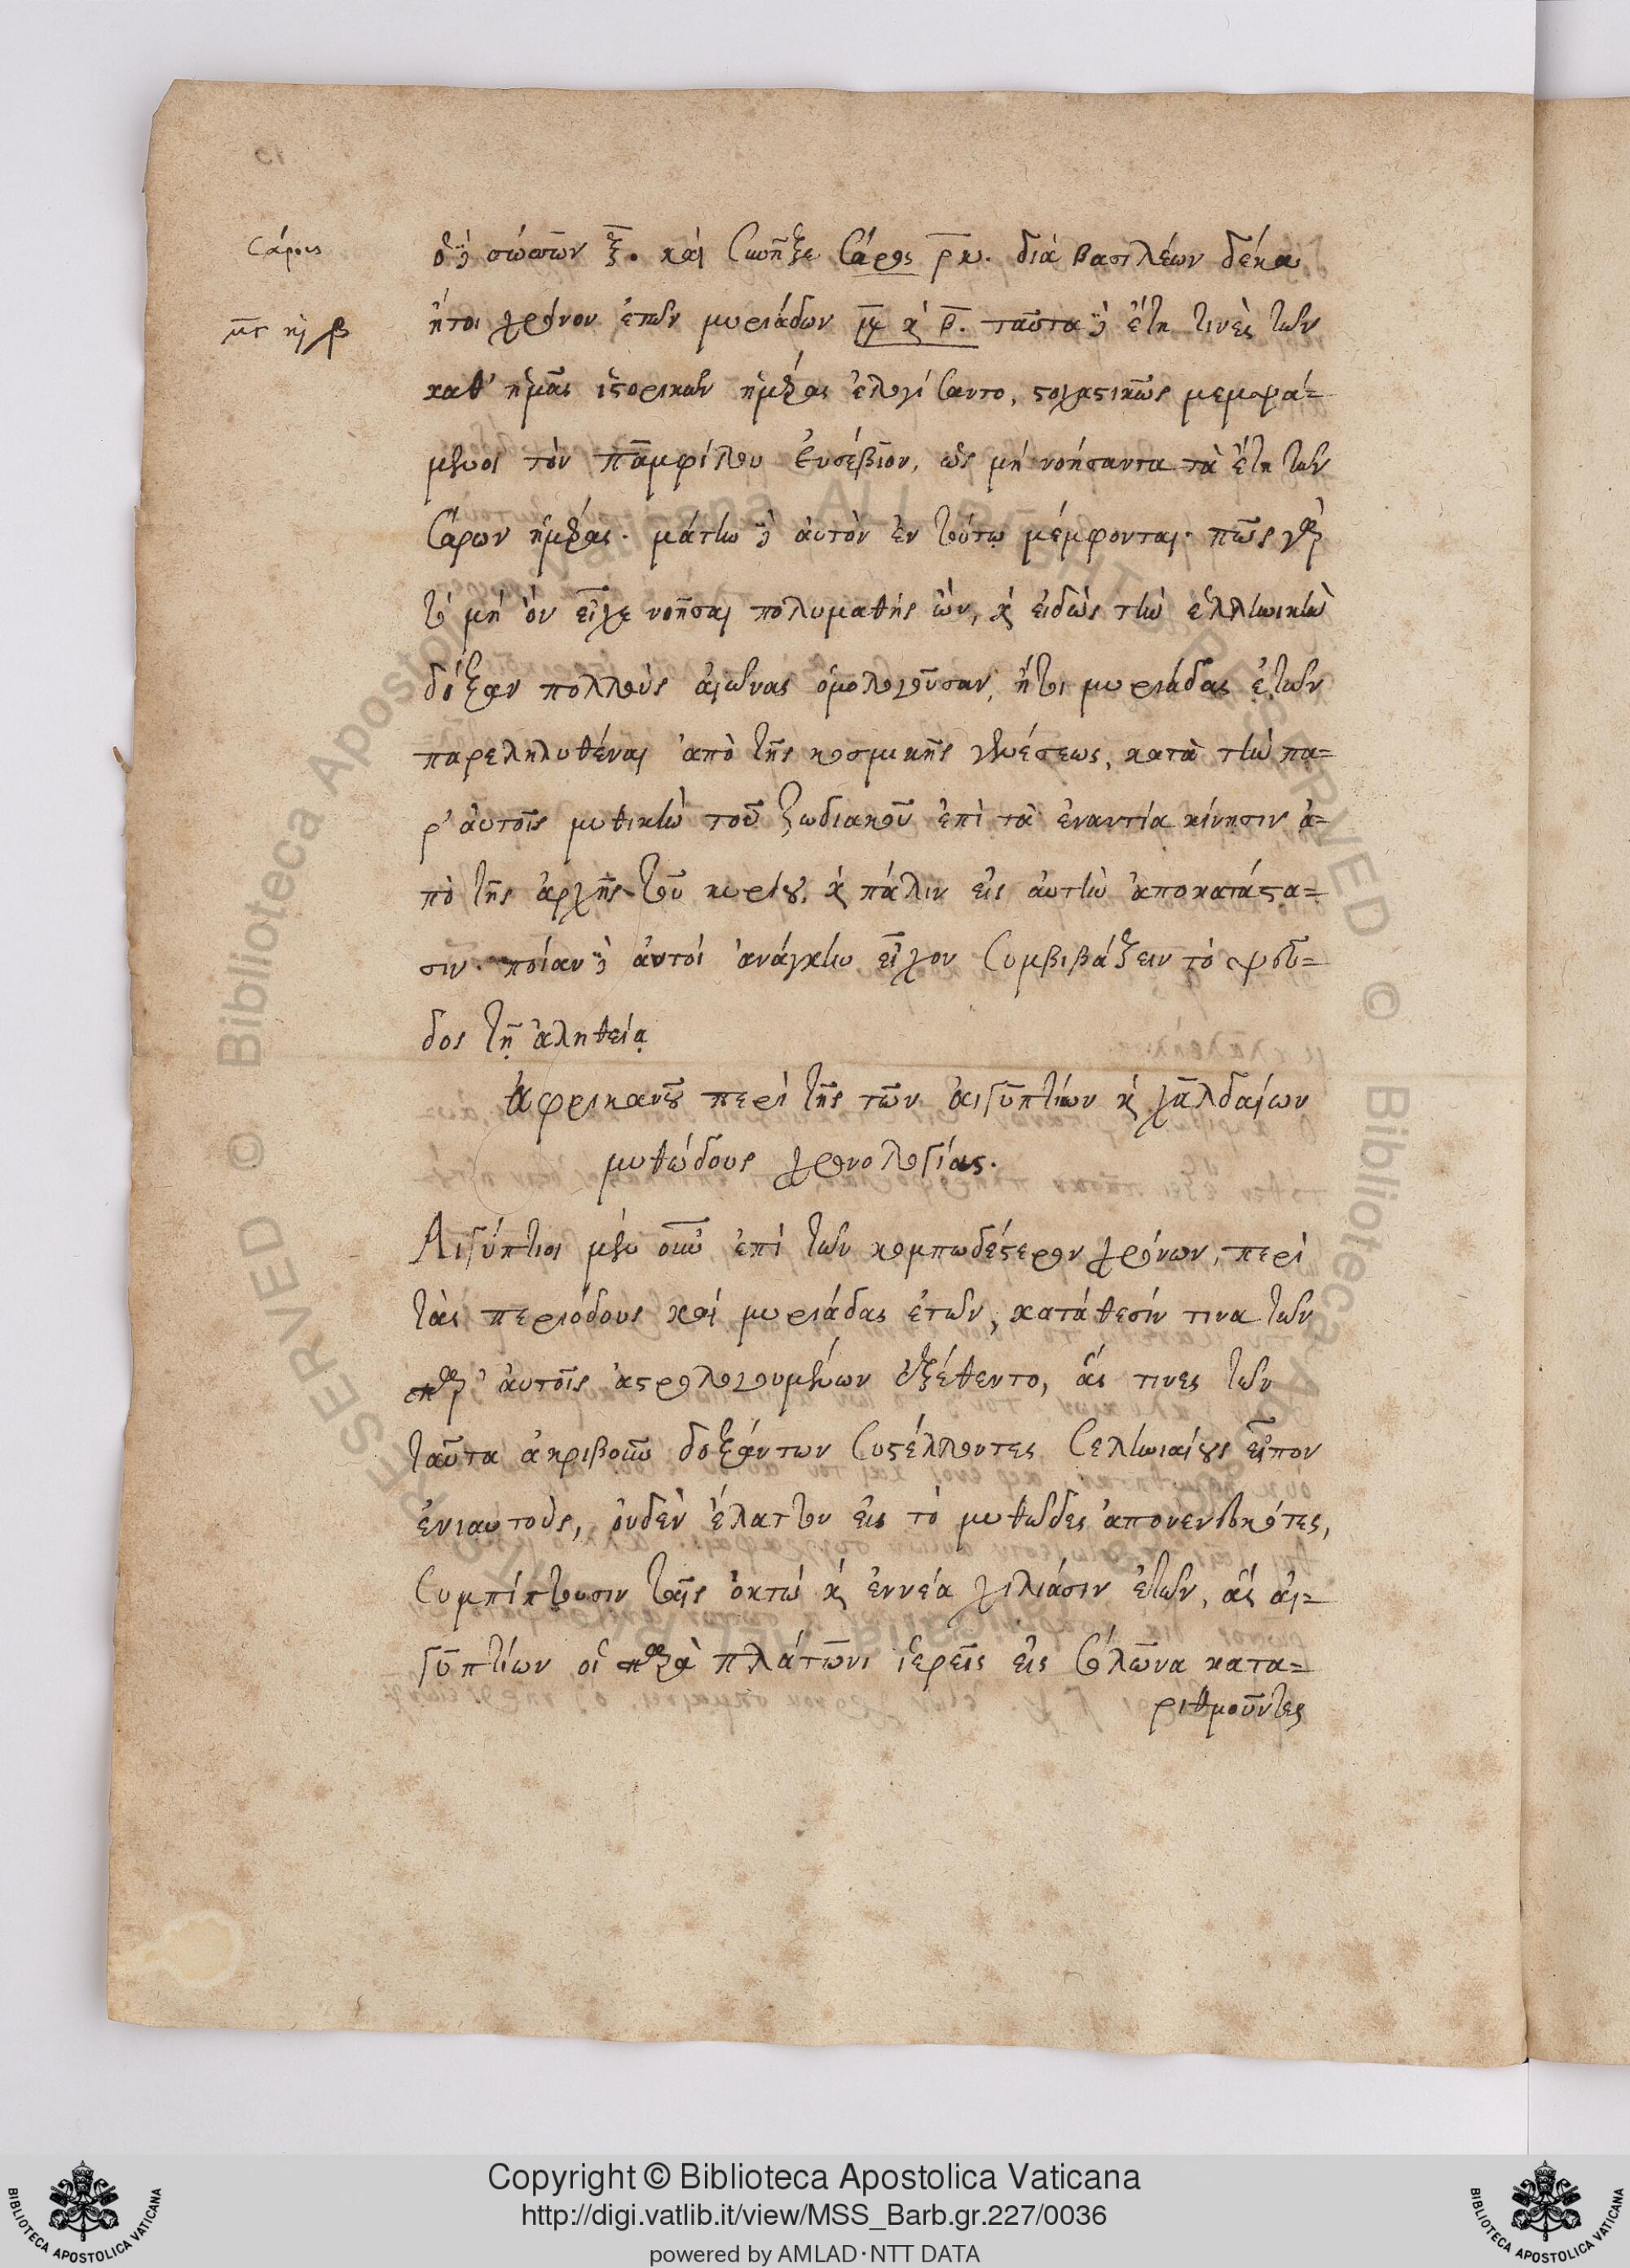 σάρους
μ̅γ̅ κ̀ β
ὁ δὲ σώσσων ξ̅. καὶ συνῆξε σάρος ρ̅κ̅. διὰ βασιλέων δέκα
ἤτοι χρόνον ἐτῶν μυριάδων μ̅γ̅ κ̀ β̅. ταῦτα δὲ ἔτη τινὲς τῶν
καθ' ἡμᾶς ἱστορικῶν ἡμέρας ἐλογίσαντο, στοχαστικῶς μεμψά=
μενοι τὸν παμφίλου ἐυσέβιον, ὡς μὴ νοήσαντα τὰ ἔτη τῶν
σάρων ἡμέρας. μάτην δὲ ἀυτὸν ἐν τούτῳ μέμφονται. πῶς γὰρ
τὸ μὴ ὂν εἶχε νοῆσαι πολυμαθὴς ὢν, κ̀ ειδὼς τὴν ἑλληνικὴν
δόξαν πολλοὺς ἀιῶνας ὁμολογοῦσαν, ἤτοι μυριάδας ἐτῶν
παρεληλυθέναι ἀπὸ τῆς κοσμικῆς γενέσεως, κατὰ τὴν πα=
ρ' ἀυτοῖς μυθικὴν τοῦ ζωδιακοῦ ἐπὶ τὰ ἐναντία κίνησιν ἀ=
πὸ τῆς ἀρχῆς τοῦ κριοῦ, κ̀ πάλιν εἰς ἀυτὴν ἀποκατάστα=
σιν. ποίαν δὲ ἀυτοὶ ἀνάγκην εἶχον συμβιβάζειν τὸ ψεῦ=
δος τῇ ἀληθείᾳ
ἀφρικανοῦ περὶ τῆς τῶν ἀιγυπτίων κ̀ χαλδαίων
μυθώδους χρονολογίας.
Αιγύπτιοι μὲν οὖν ἐπὶ τῶν κομπωδέστερον χρόνων, περὶ
τὰς περιόδους καὶ μυριάδας ἐτῶν, κατὰ θεσίν τινα τῶν
παρ' ἀυτοῖς ἀστρολογουμένων ἐξέθεντο, ἅς τινες τῶν
ταῦτα ἀκριβοῦν δοξάντων συστέλλοντες σεληνιαίους εἶπον
ἐνιαυτοὺς, ὀυδὲν ἔλαττον εἰς τὸ μυθῶδες ἀπονενευκότες,
συμπίπτουσιν ταῖς ὀκτὼ κ̀ ἐννέα χιλιάσιν ἐτῶν, ἃς ἀι=
γυπτίων οἱ παρὰ πλάτωνι ἱερεῖς εἰς σόλωνα κατα=
ριθμοῦντες
Copyright © Biblioteca Apostolica Vaticana
http://digi.vatlib.it/view/MSS_Barb.gr.227/0036
powered by AMLAD·NTT DATA